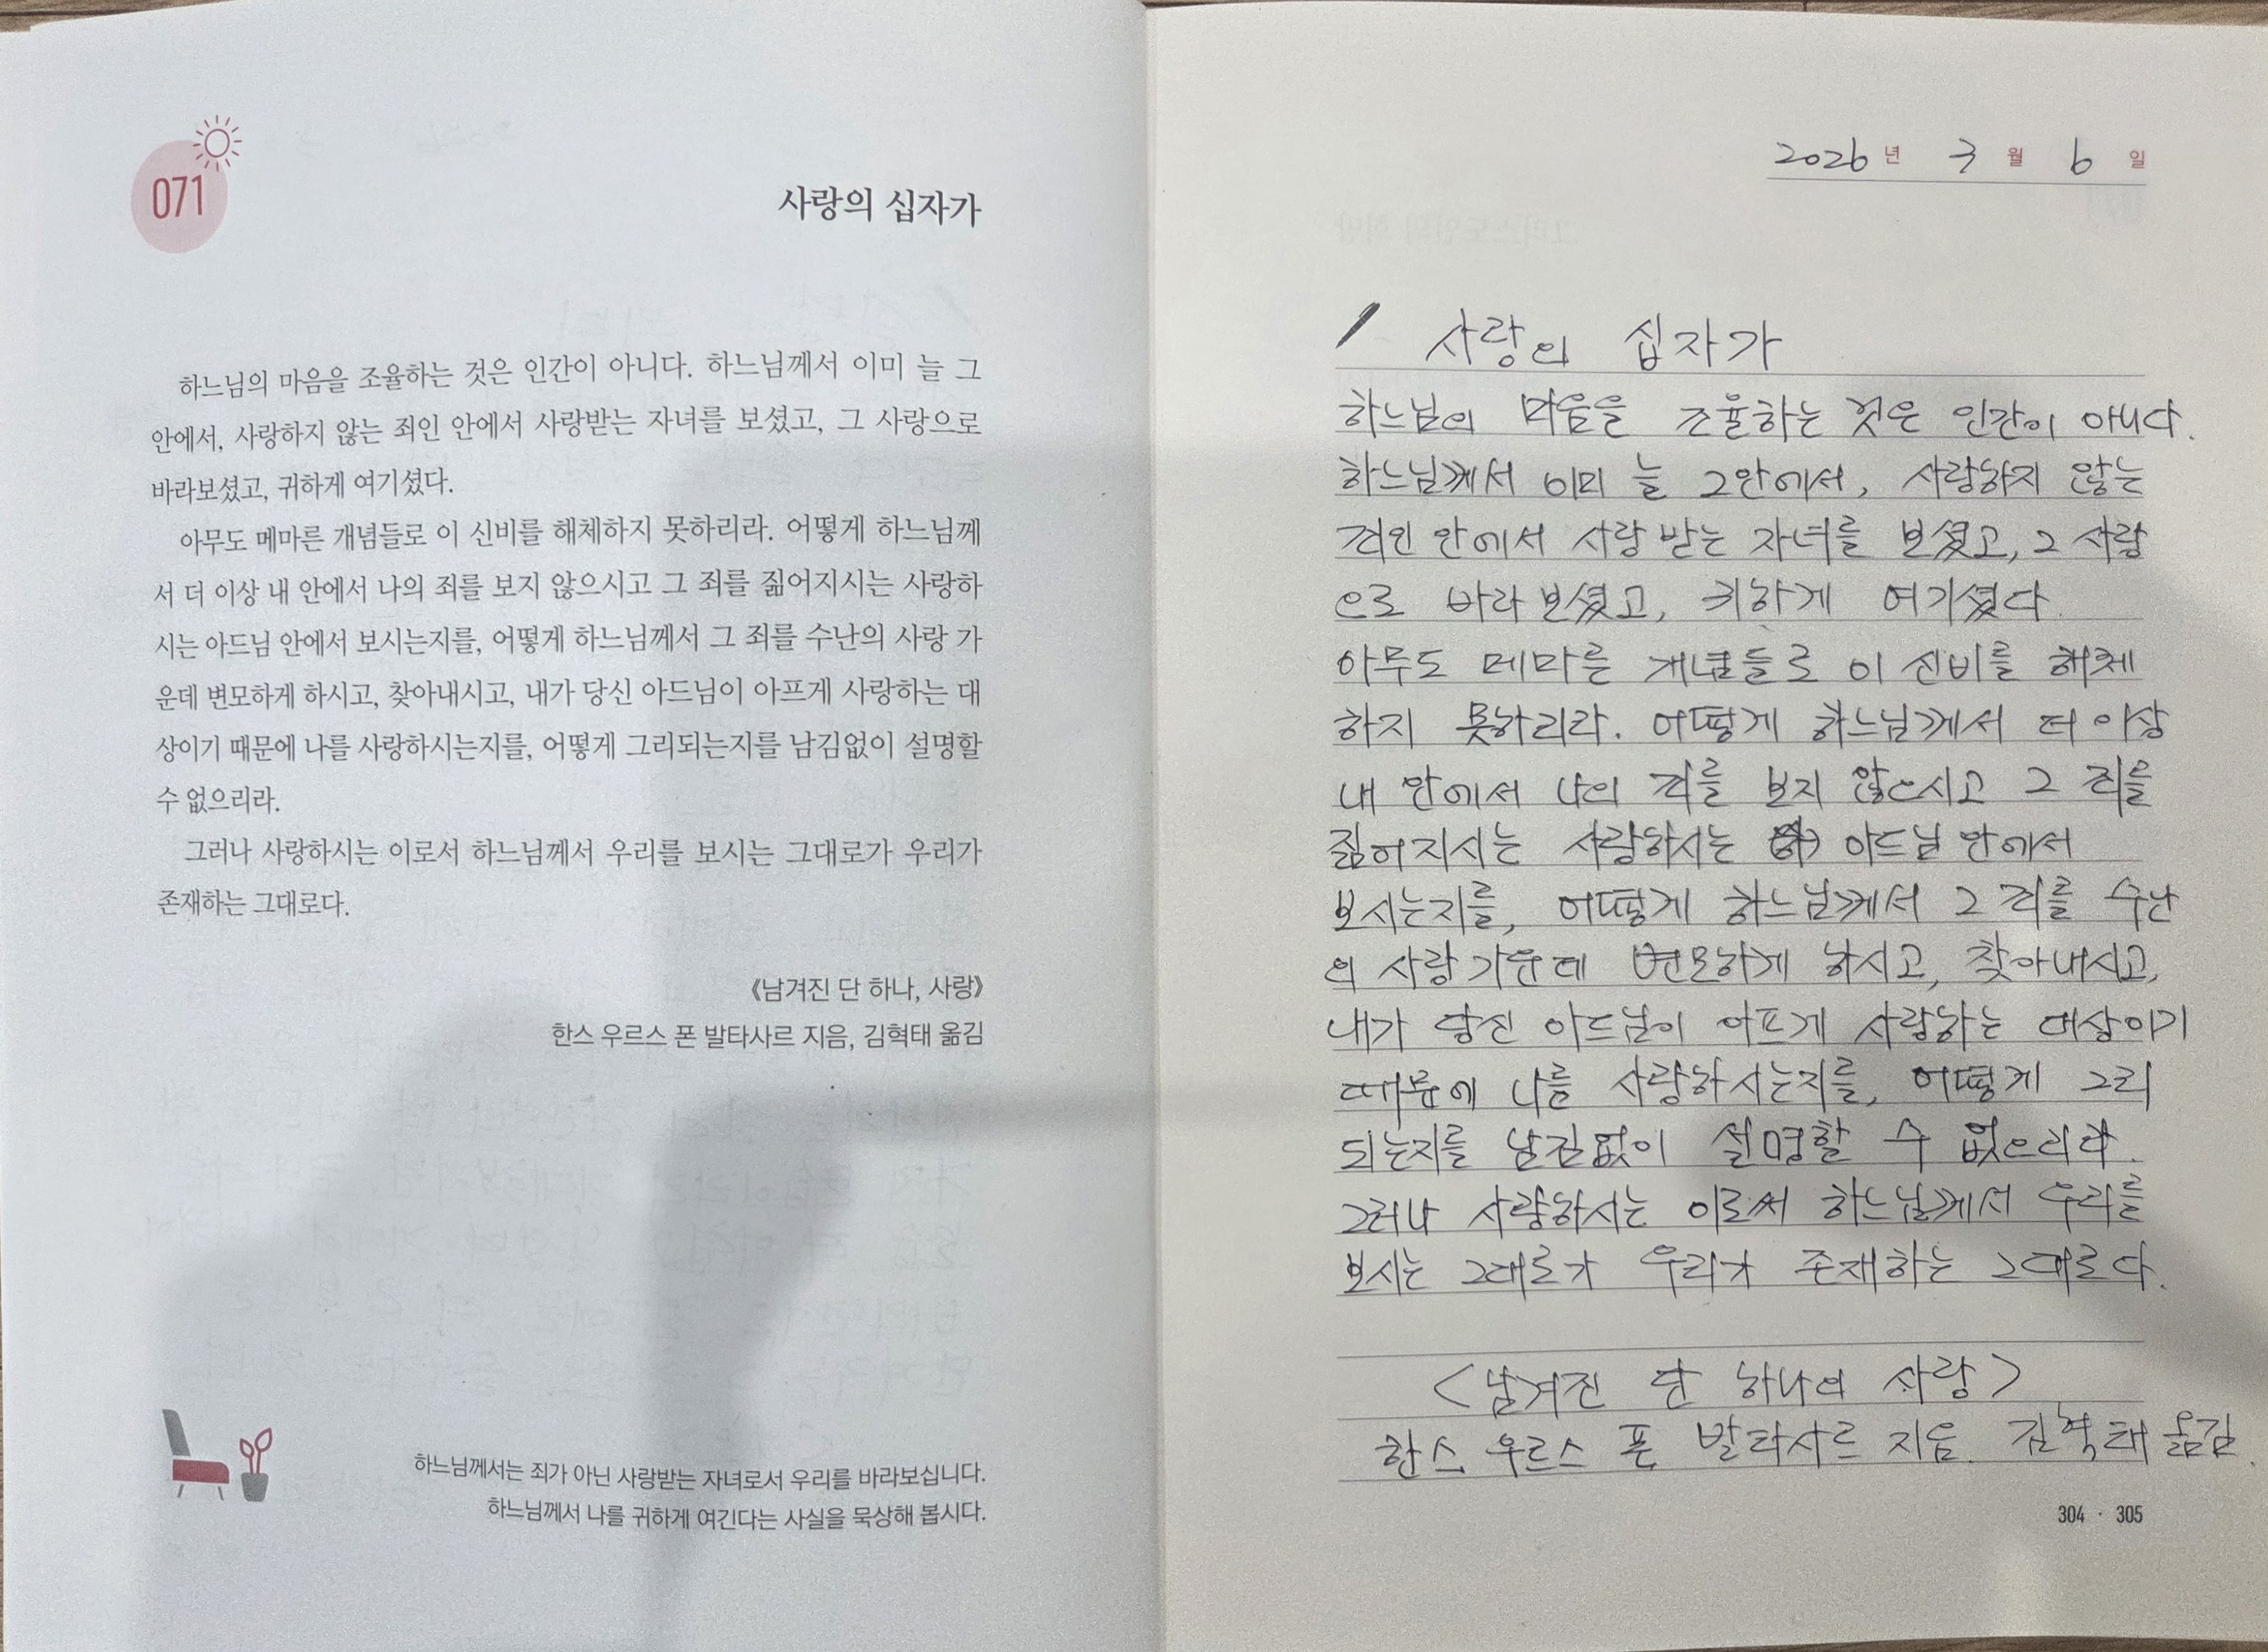 071
사랑의 십자가
하느님의 마음을 조율하는 것은 인간이 아니다. 하느님께서 이미 늘 그
안에서, 사랑하지 않는 죄인 안에서 사랑받는 자녀를 보셨고, 그 사랑으로
바라보셨고, 귀하게 여기셨다.
아무도 메마른 개념들로 이 신비를 해체하지 못하리라. 어떻게 하느님께
서 더 이상 내 안에서 나의 죄를 보지 않으시고 그 죄를 짊어지시는 사랑하
시는 아드님 안에서 보시는지를, 어떻게 하느님께서 그 죄를 수난의 사랑 가
운데 변모하게 하시고, 찾아내시고, 내가 당신 아드님이 아프게 사랑하는 대
상이기 때문에 나를 사랑하시는지를, 어떻게 그리되는지를 남김없이 설명할
수 없으리라.
그러나 사랑하시는 이로서 하느님께서 우리를 보시는 그대로가 우리가
존재하는 그대로다.
《남겨진 단 하나, 사랑》
한스 우르스 폰 발타사르 지음, 김혁태 옮김
하느님께서는 죄가 아닌 사랑받는 자녀로서 우리를 바라보십니다.
하느님께서 나를 귀하게 여긴다는 사실을 묵상해 봅시다.
2026년 3월 6일
사랑의 십자가
하느님의 마음을 조율하는 것은 인간이 아니다.
하느님께서 이미 늘 그안에서, 사랑하지 않는
죄인 안에서 사랑 받는 자녀를 보셨고, 그 사랑
으로 바라 보셨고, 귀하게 여기셨다.
아무도 메마른 개념들로 이 신비를 해체
하지 못하리라. 어떻게 하느님께서 더 이상
내 안에서 나의 죄를 보지 않으시고 그 죄를
짊어지시는 사랑하시는 아드님 안에서
보시는지를, 어떻게 하느님께서 그 죄를 수난
의 사랑 가운데 변모하게 하시고, 찾아내시고,
내가 당신 아드님이 아프게 사랑하는 대상이기
때문에 나를 사랑하시는지를, 어떻게 그리
되는지를 남김없이 설명할 수 없으리라.
그러나 사랑하시는 이로써 하느님께서 우리를
보시는 그대로가 우리가 존재하는 그대로다.
<남겨진 단 하나의 사랑>
한스 우르스 폰 발타사르 지음. 김혁태 옮김.
304 · 305